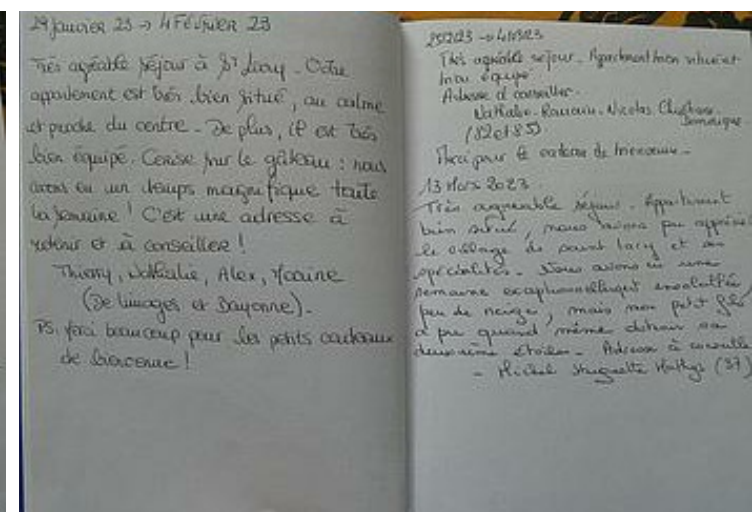 29 janvier 23 → 4 Février 23
Très agréable séjour à St Lary. Votre
appartement est très bien situé, au calme
et proche du centre. De plus, il est très
bien équipé. Cerise sur le gâteau : nous
avons eu un temps magnifique toute
la semaine ! C'est une adresse à
retenir et à conseiller !
Thierry, Nathalie, Alex,
(De Limoges et Bayonne).
PS. beaucoup pour les petits cadeaux
de bienvenue !
25/2/23 → 4/03/23
Très agréable séjour. Appartement bien situé et
bien équipé.
Adresse à conseiller.
Nathalie. Romain. Nicolas.
Dominique
(82 et 85)
Merci pour le cadeau de bienvenue.
13 Mars 2023.
Très agréable séjour. Appartement
bien situé, nous avons pu apprécier
le village de saint lary et
spécialités. Nous avons eu une
semaine exceptionnellement ensoleillée,
peu de neige, mais mon petit fils
a pu quand même obtenir sa
deuxième étoile. Adresse à
- Michel Huguette Mathys (37)